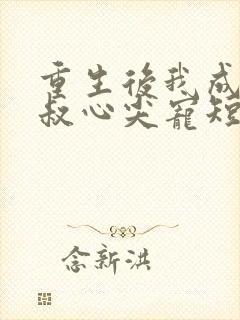 重生後我成
叔心尖寵短
念新洪